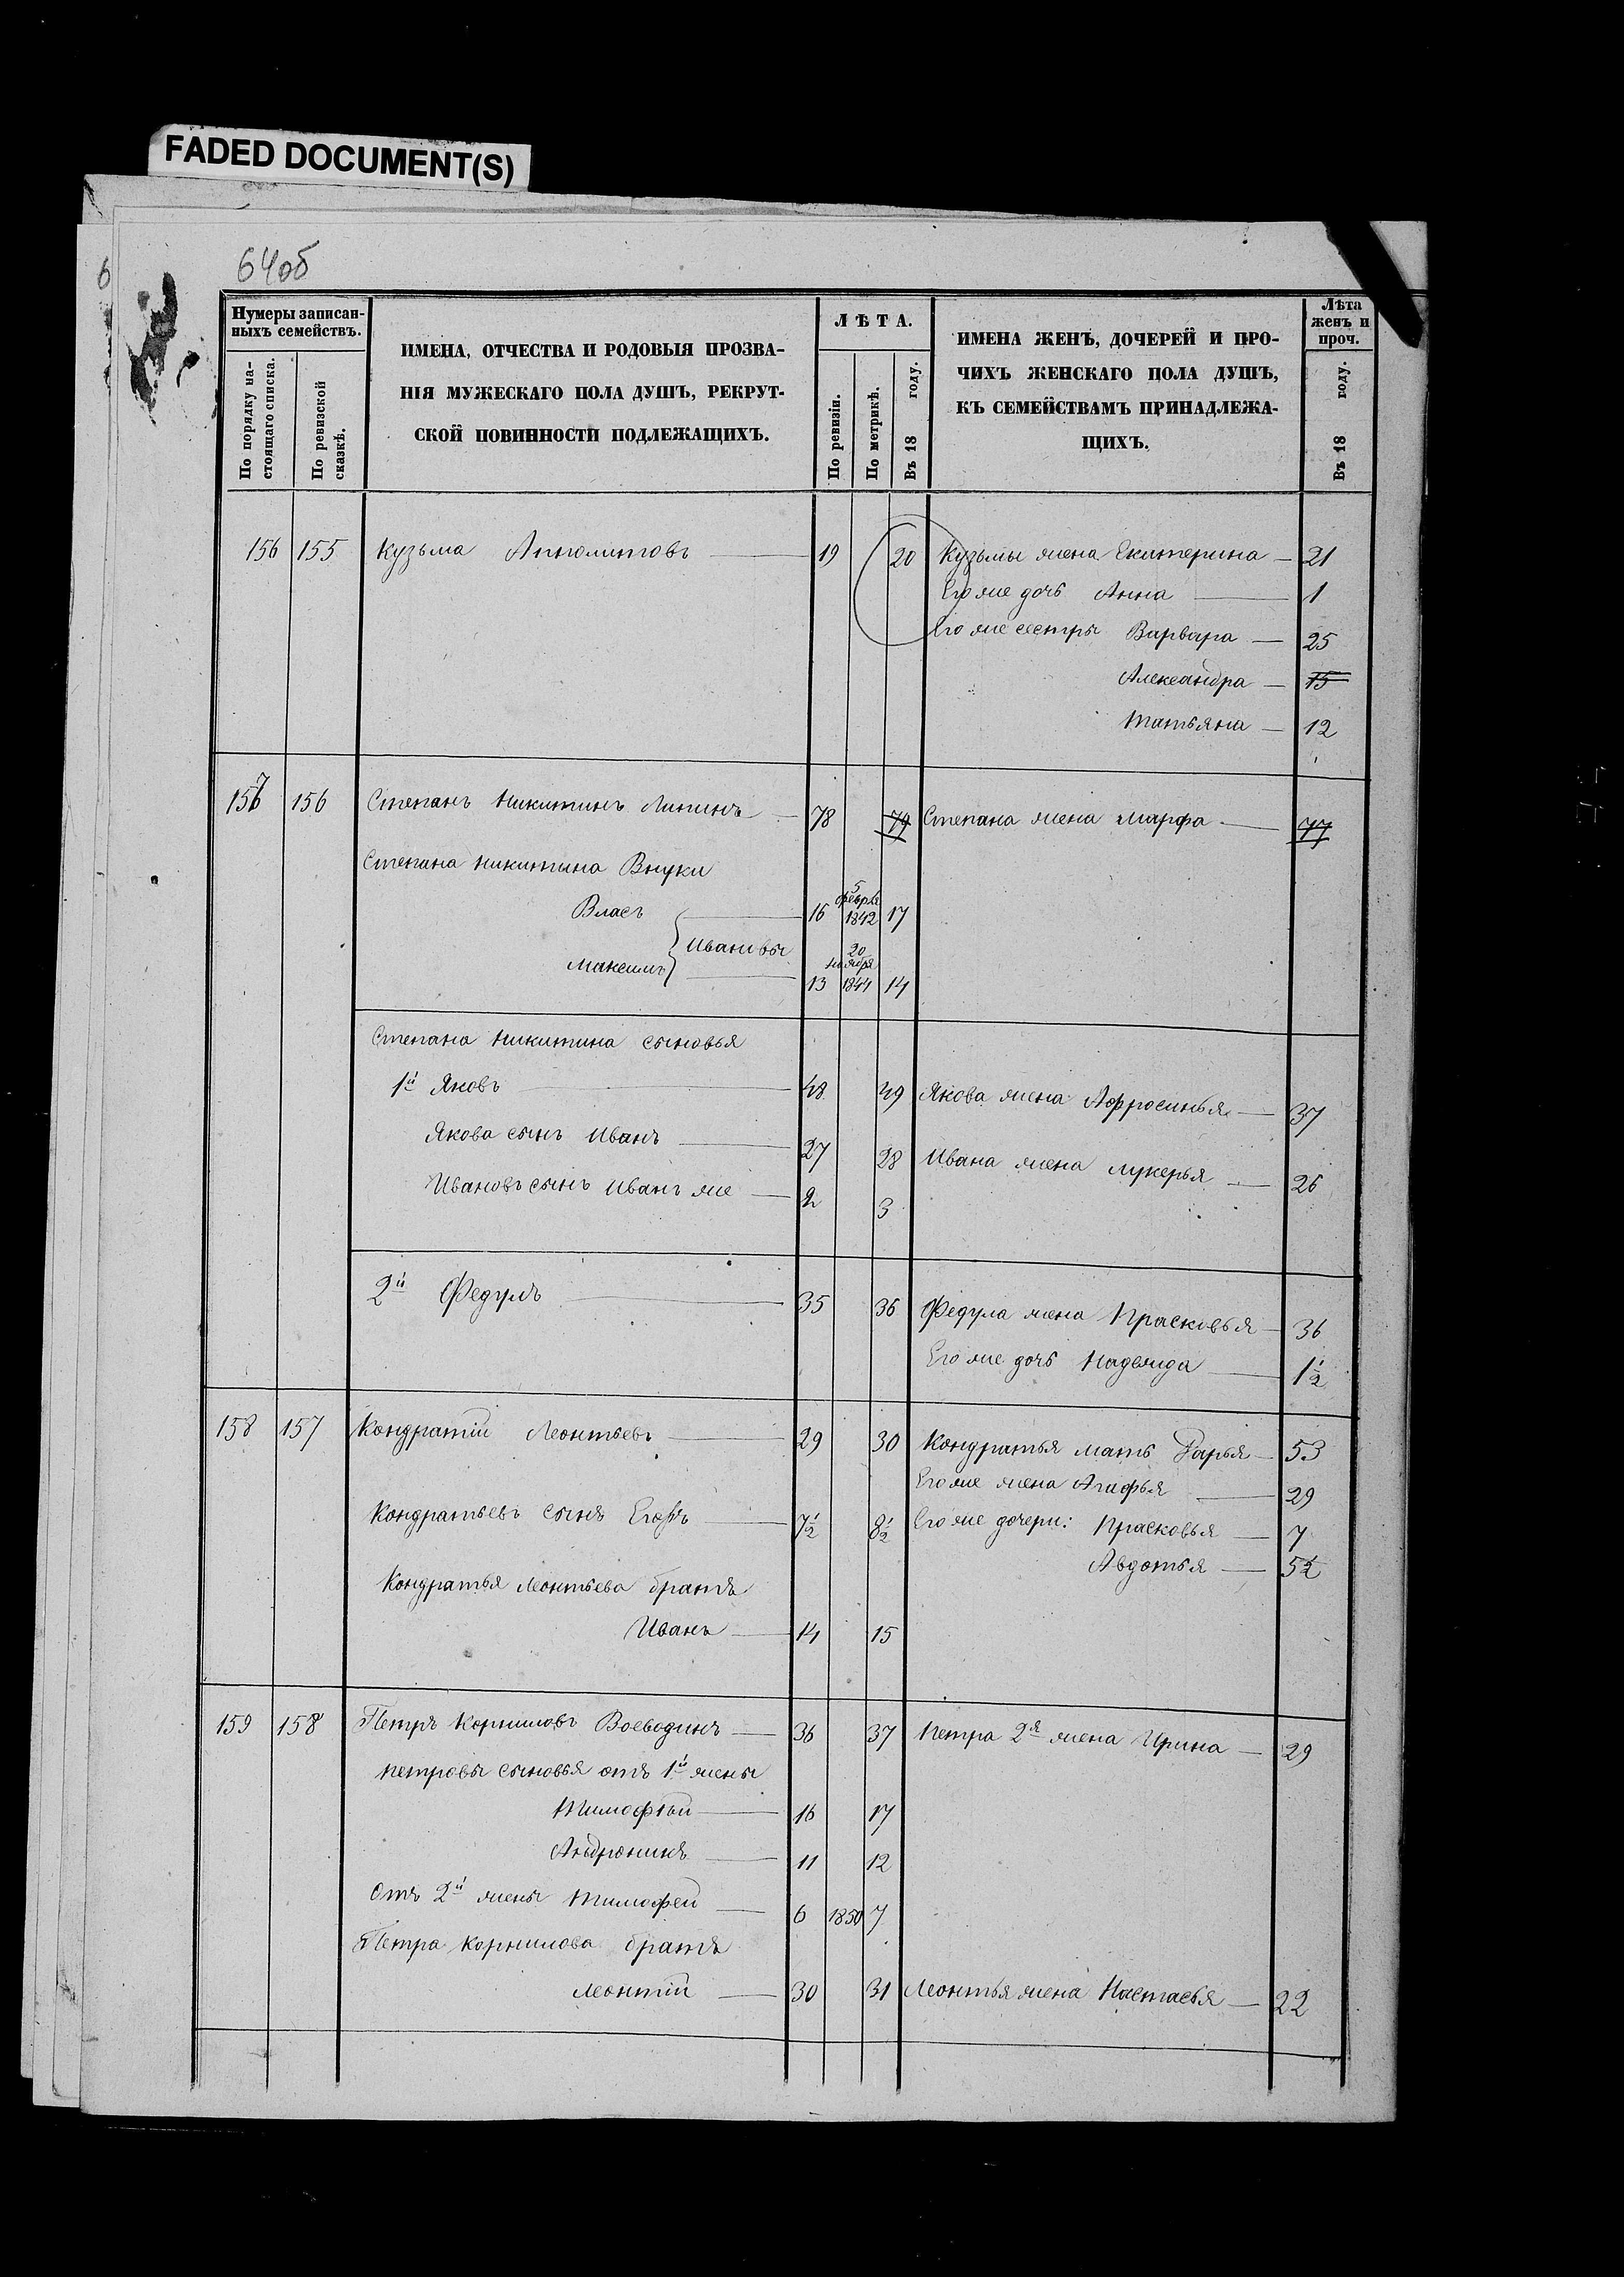 FADED DOCUMENT(S)
64об
Нумеры записан-
ныхъ семействъ.
По порядку на-
стоящаго списка.
По ревизской
сказкѣ.
ИМЕНА, ОТЧЕСТВА И РОДОВЫЯ ПРОЗВА-
НІЯ МУЖЕСКАГО ПОЛА ДУШЪ, РЕКРУТ-
СКОЙ ПОВИННОСТИ ПОДЛЕЖАЩИХЪ.
ЛѢТА.
По ревизіи.
По метрикѣ.
Въ 18 году.
ИМЕНА ЖЕНЪ, ДОЧЕРЕЙ И ПРО-
ЧИХЪ ЖЕНСКАГО ПОЛА ДУШЪ,
КЪ СЕМЕЙСТВАМЪ ПРИНАДЛЕЖА-
ЩИХЪ.
Лѣта
женъ и
проч.
Въ 18 году.
156 155 Кузьма Апполитовъ 19 20 Кузьмы жена Екатерина 21
Его же дочь Анна 1
Его же сестры Варвара 25
Александра 15
Татьяна 12
157 156 Степанъ Никитинъ Липинъ 78 79 Степана жена Марфа 77
Степана Никитина Внуки
Власъ 16 5 февра 1842 17
Ивановы
Максимъ 13 20 ноября 1844 14
Степана Никитина сыновья
1й Яковъ 48 49 Якова жена Афросинья 37
Якова сынъ Иванъ 27 28 Ивана жена Лукерья 26
Ивановъ сынъ Иванъ же 2 3
2й Федулъ 35 36 Федула жена Прасковья 36
Его же дочь Надежда 1½
158 157 Кондратій Леонтьевъ 29 30 Кондратья мать Дарья 53
Его же жена Агафья 29
Кондратьевъ сынъ Егоръ 7½ 8½ Его же дочери: Прасковья 7
Авдотья 5½
Кондратья Леонтьева братъ
Иванъ 14 15
159 158 Петръ Корниловъ Воеводинъ 36 37 Петра 2я жена Ирина 29
Петровы сыновья отъ 1й жены
Тимофѣй 16 17
Андроникъ 11 12
Отъ 2й жены Тимофей 6 1850 7
Петра Корнилова братъ
Леонтій 30 31 Леонтья жена Настасья 22